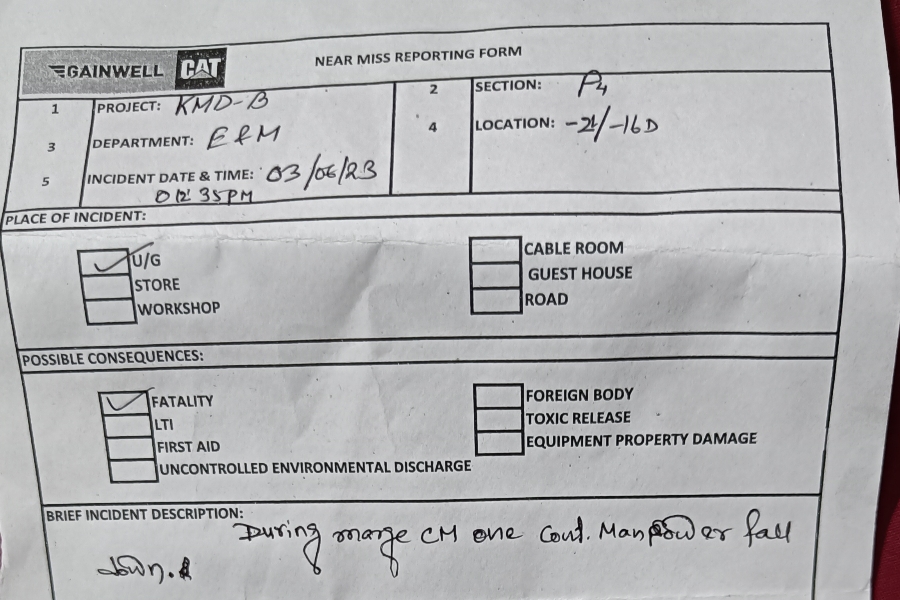 GAINWELL CAT
NEAR MISS REPORTING FORM
1 PROJECT: KMD-B
2 SECTION: P4
3 DEPARTMENT: E&M
4 LOCATION: -21/-16D
5 INCIDENT DATE & TIME: 03/06/23
012:35PM
PLACE OF INCIDENT:
U/G
STORE
WORKSHOP
CABLE ROOM
GUEST HOUSE
ROAD
POSSIBLE CONSEQUENCES:
FATALITY
LTI
FIRST AID
UNCONTROLLED ENVIRONMENTAL DISCHARGE
FOREIGN BODY
TOXIC RELEASE
EQUIPMENT PROPERTY DAMAGE
BRIEF INCIDENT DESCRIPTION:
During marge CM one Cont. Manpower fall
down.